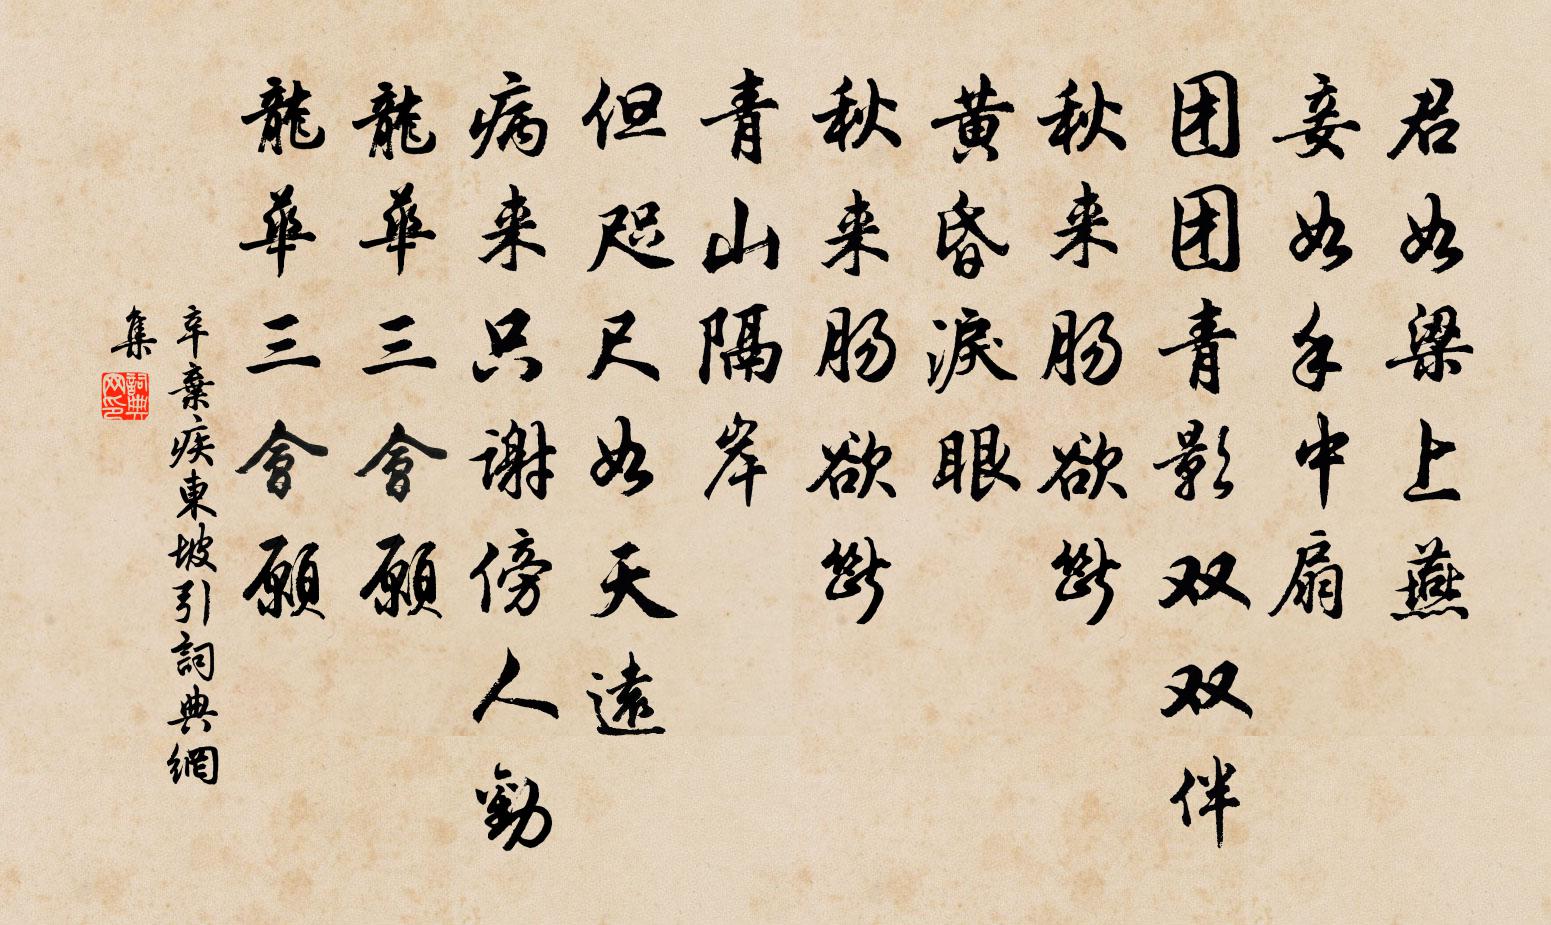 君如梁上燕
妾如手中扇
团团青影双双伴
秋来肠欲斷
黄昏淚眼
秋来肠欲斷
青山隔岸
但咫尺如天遠
病来只谢傍人勸
龍華三會願
龍華三會願
辛棄疾東坡引詞典網
集
詞典
网印